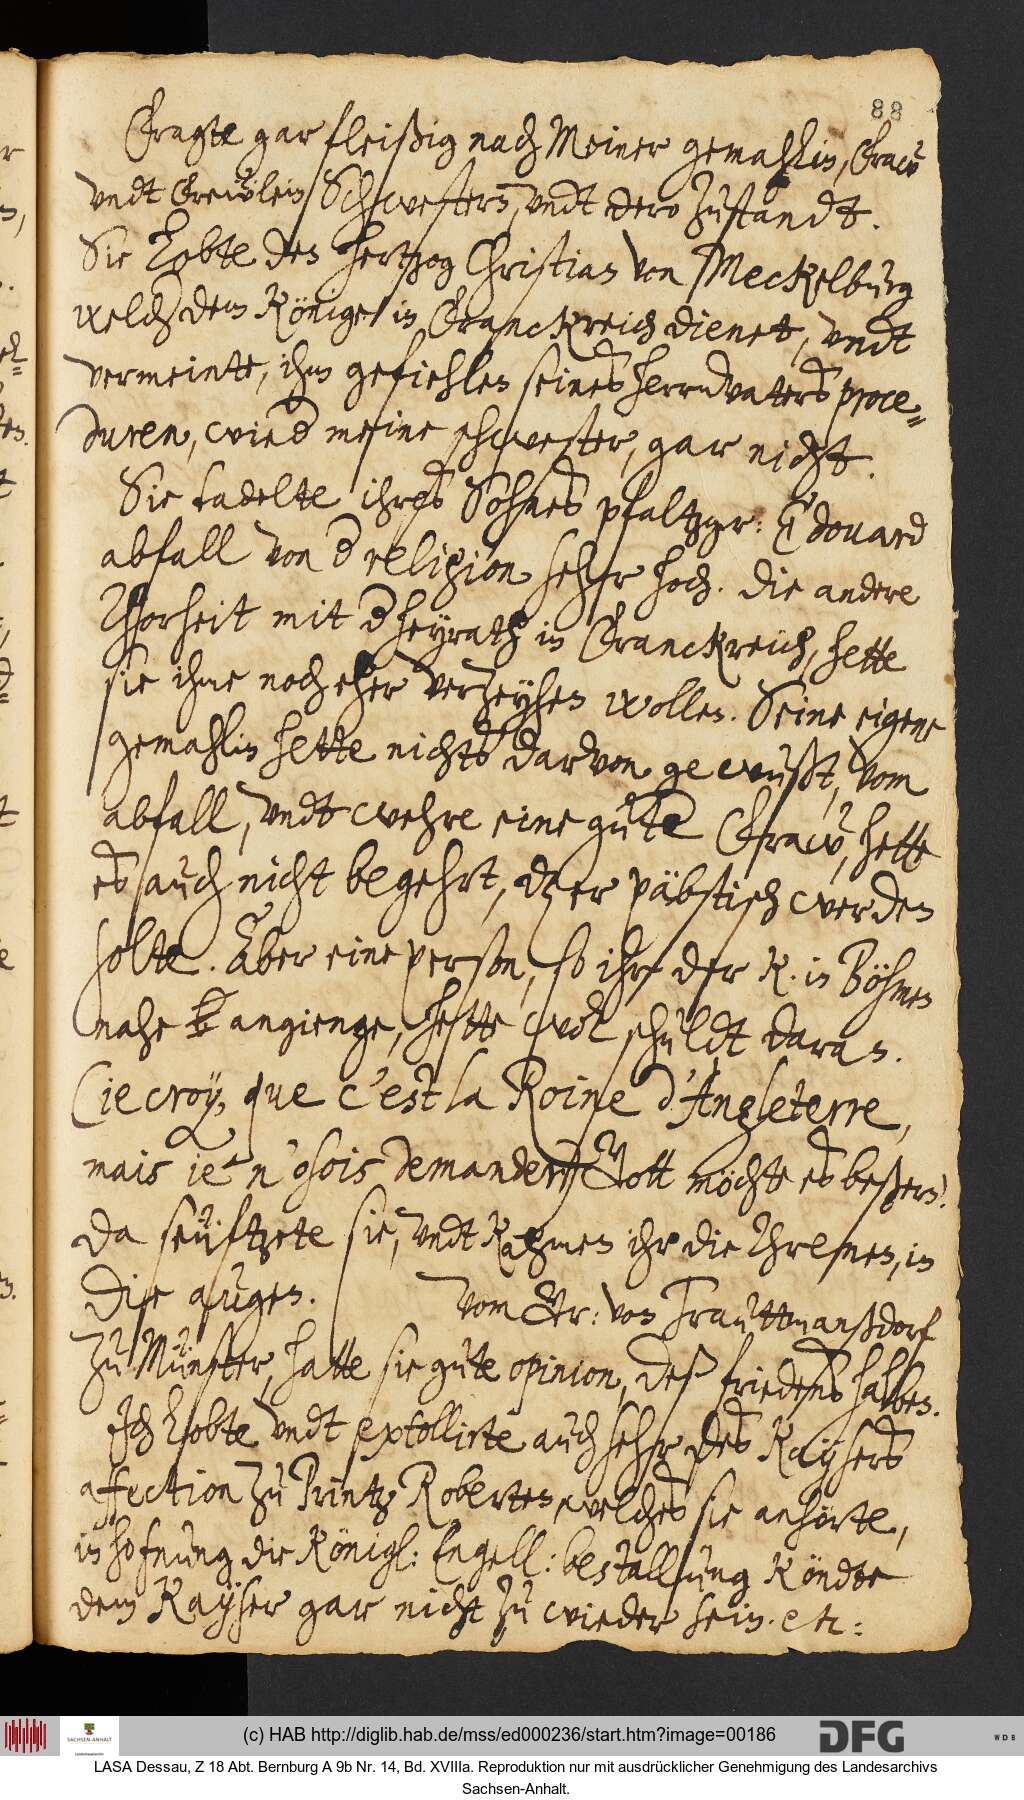 88
Fragte gar fleißig nach Meiner gemahlin, Fraw
vndt Frewlein Schwestern, vndt dero zustandt.
Sie Lobte den hertzog Christian von Meckelburg
welch dem Könige in Franckreich dienet, vndt
vermeinte, ihm gefiehlen seines herrnvaters proce¬
duren, wie d meine schwester, gar nicht.
Sie tadelte ihres Sohnes pfaltzgr: Edouard
abfall von d religion sehr hoch. die andere
Thorheit mit d heyrath in Franckreich, hette
sie ihme noch eher verzeyhen wollen. Seine eigene
gemahlin hette nichts darvon gewußt, vom
abfall, vndt wehre eine gute Fraw, hette
es auch nicht begehrt, dz er päbstisch werden
solte. Aber eine person, so ihr der K. in Böhmen
nahe angienge, hette wol schuldt daran.
(ie croy, que c'est la Roine d'Angleterre,
mais ie n'osois demander) Gott möchte es beßern.
Da seüftzete sie, vndt Kahmen ihr die Threnen, in
die augen. Vom Gr: von Trauttmanßdorf
zu Münster, hatte sie gute opinion, deß friedens halben.
Ich Lobte vndt extollirte auch sehr des Kaysers
affection zu Printz Roberten welches sie anhörte,
in hofnung die Königl: Engell: bestallung Köndte
dem Kayser gar nicht zu wieder sein. etc:
(c) HAB http://diglib.hab.de/mss/ed000236/start.htm?image=00186
SACHSEN-ANHALT
DFG
WDB
LASA Dessau, Z 18 Abt. Bernburg A 9b Nr. 14, Bd. XVIIIa. Reproduktion nur mit ausdrücklicher Genehmigung des Landesarchivs
Sachsen-Anhalt.